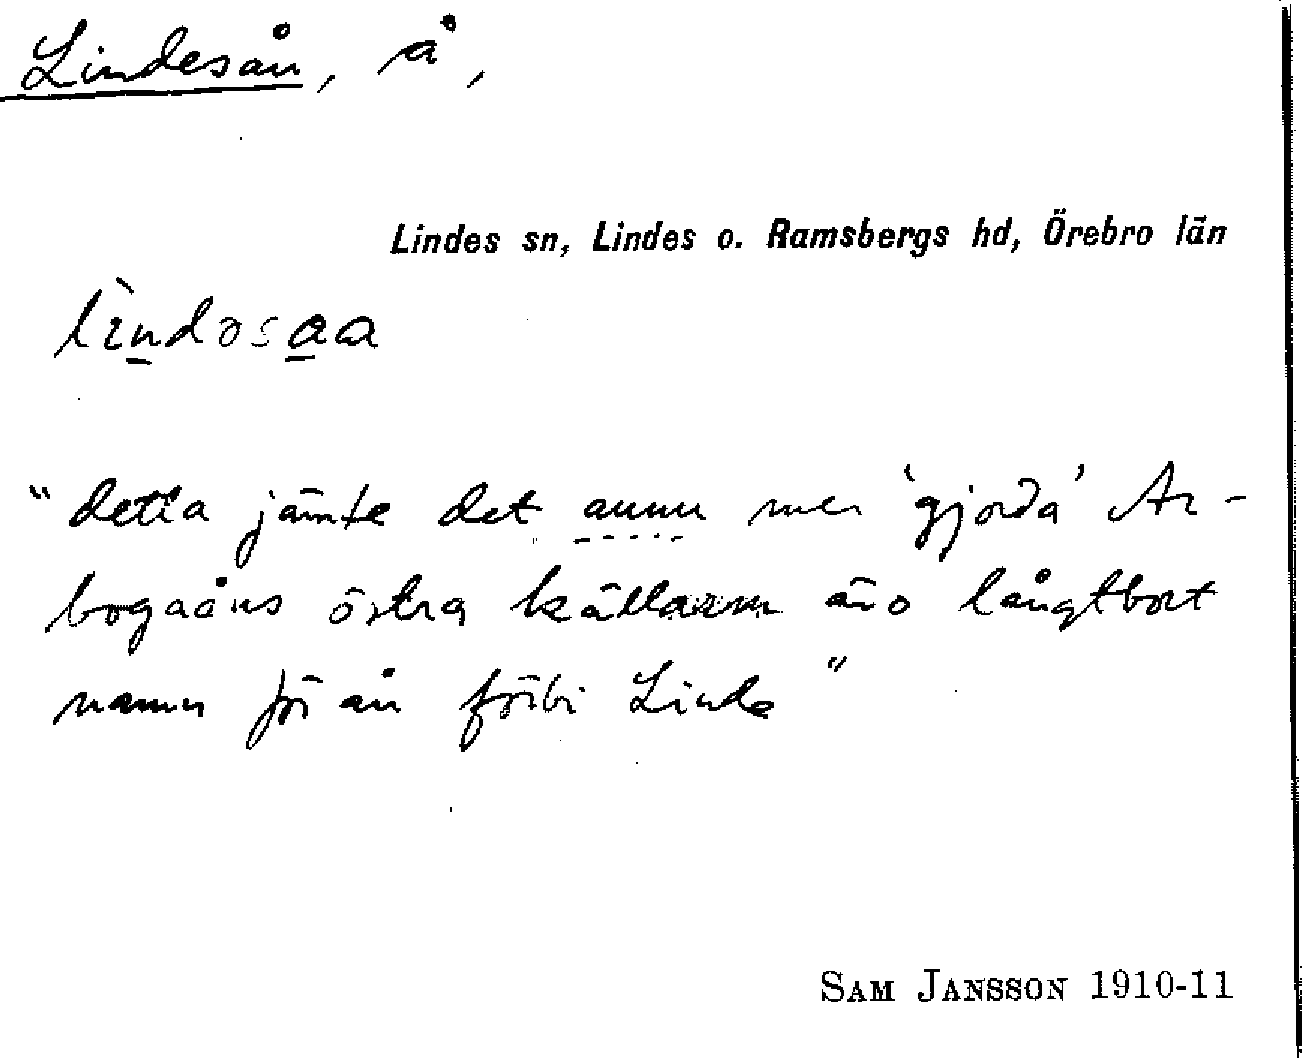 Lindesån, å,
Lindes sn, Lindes o. Ramsbergs hd, Örebro län
lìndosaa
"detta jämte det ännu mer 'gjorda' Ar-
bogaåns östra källarm äro långtbort
namn för ån förbi Linde"
SAM JANSSON 1910-11